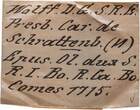 Wolff D.G. S.R.E.
Presb. Car. de
Schrattenb. (N)
Epus. Ol. dux S.
R. I. Bo. R. Ca. Bo.
Comes 1715.